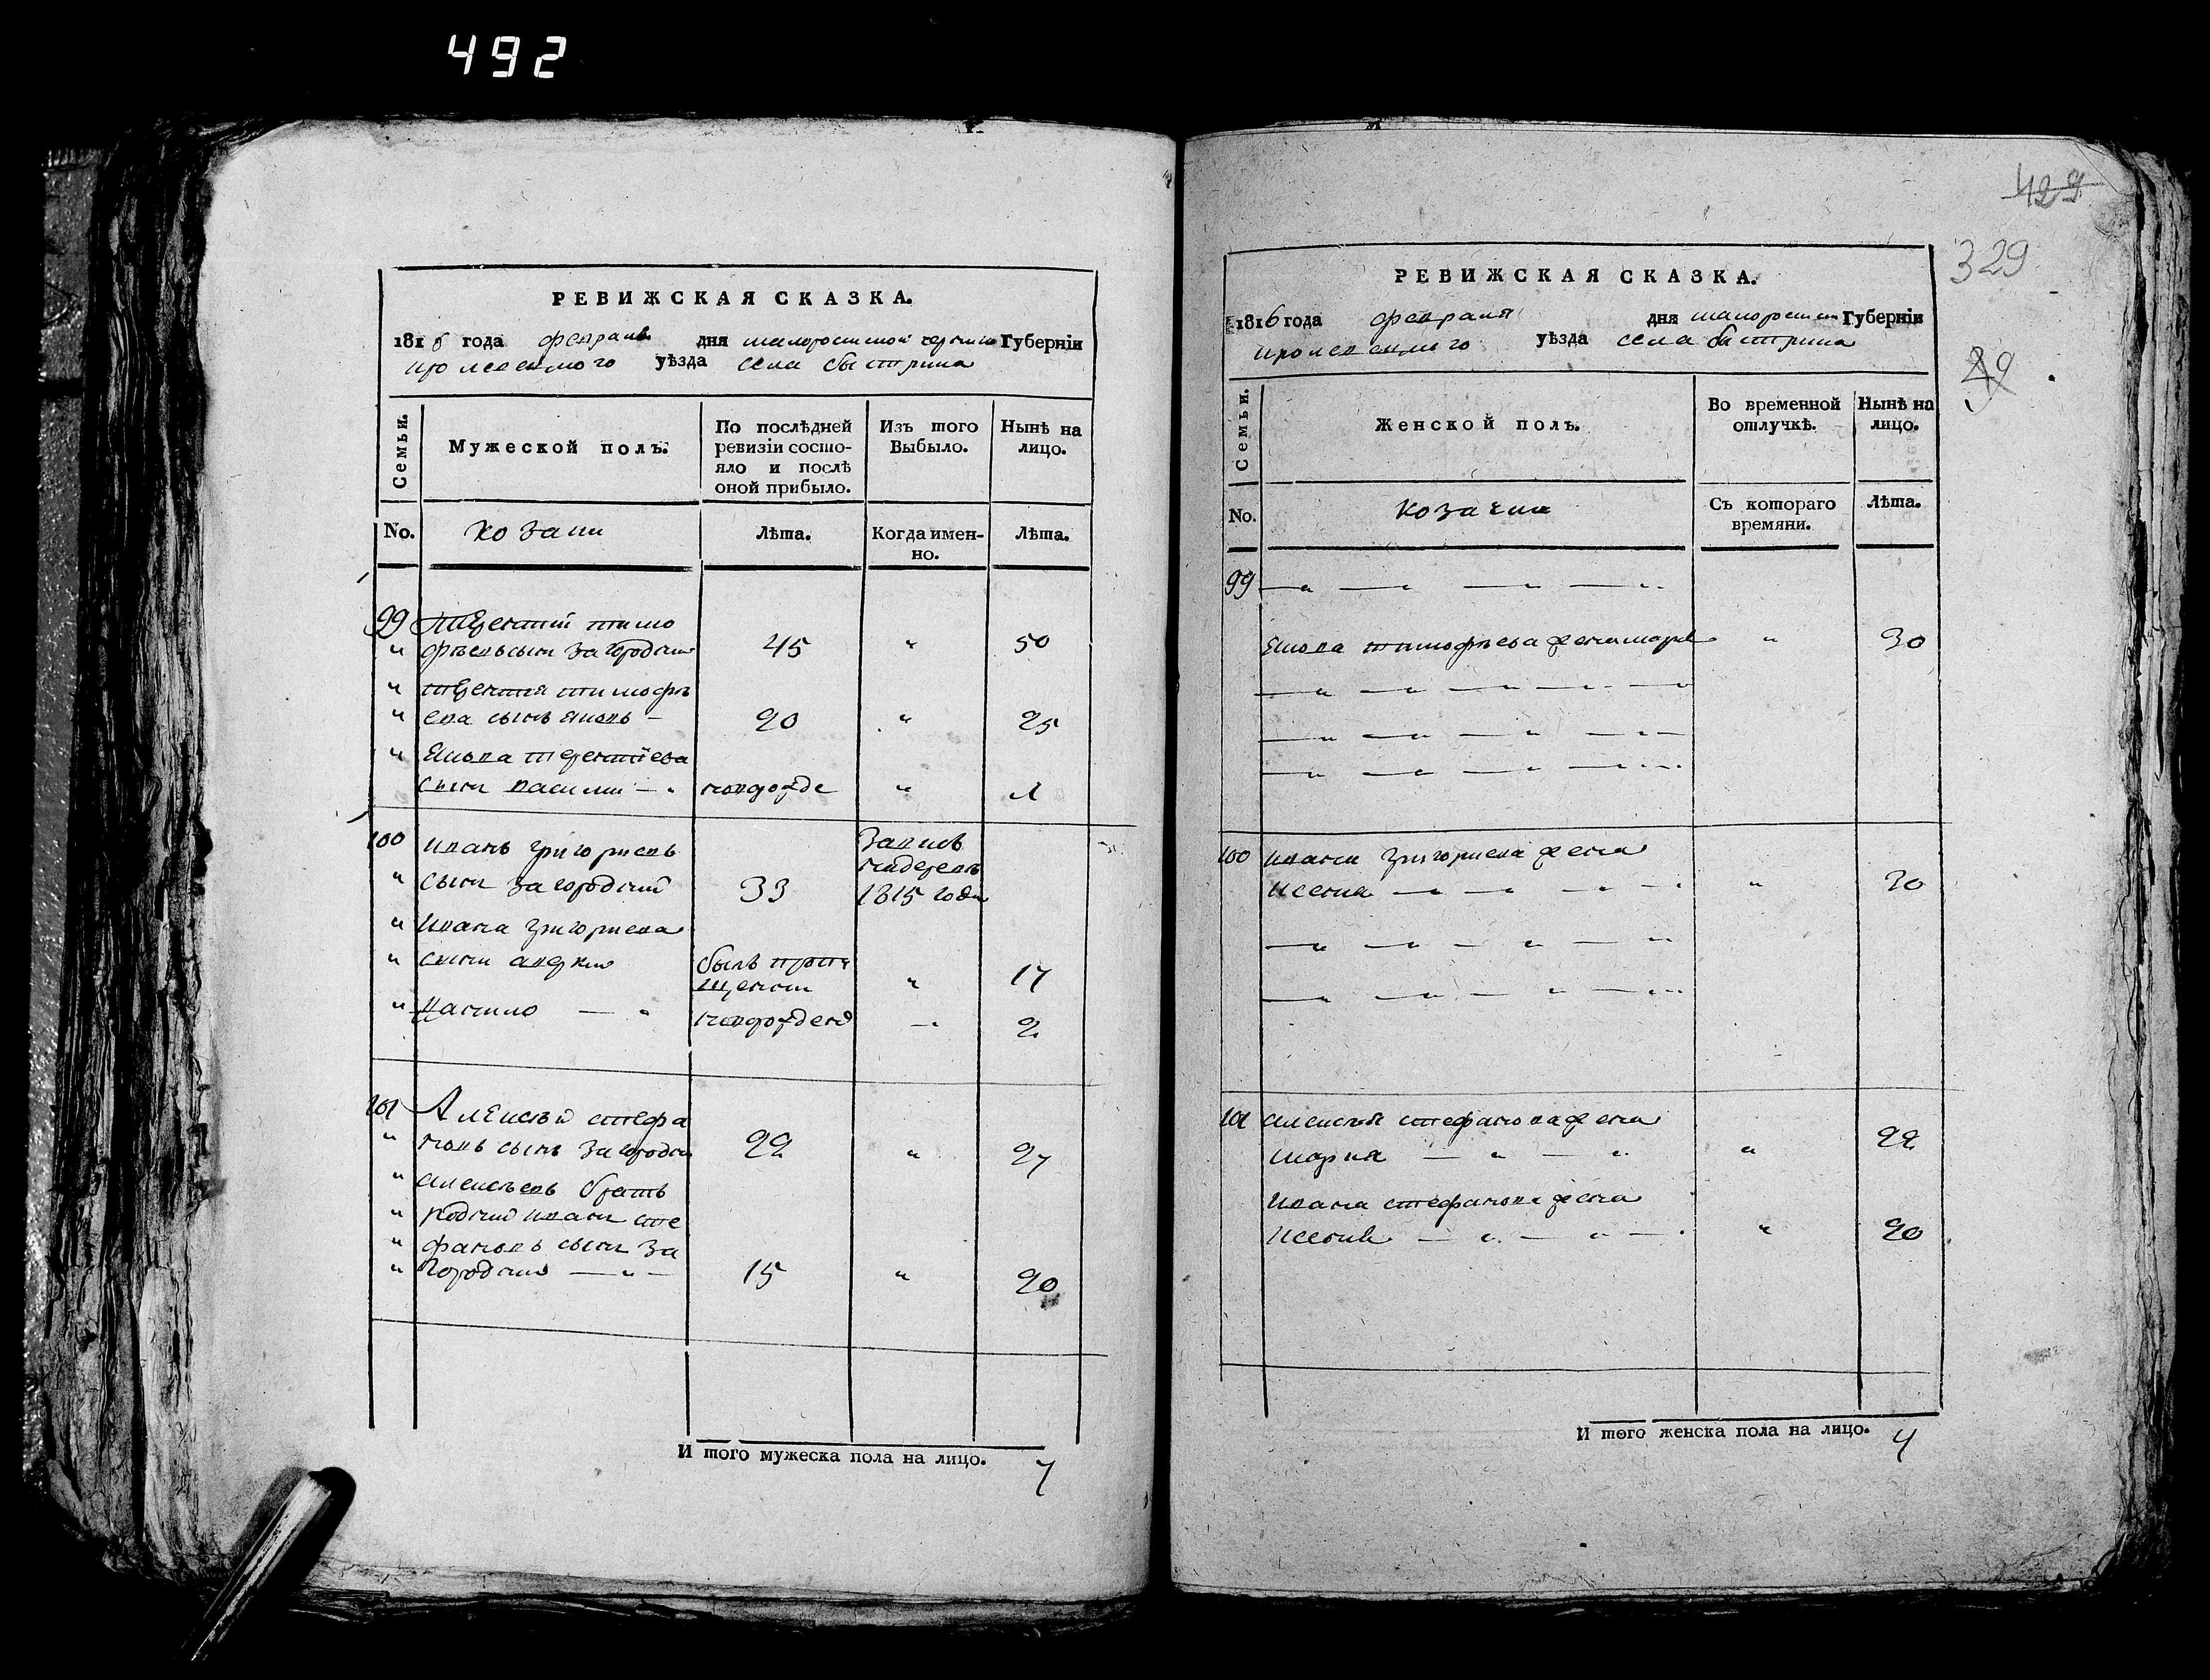 492
РЕВИЖСКАЯ СКАЗКА.
1816 года февраля дня малоросийской черниго Губернiи
кролевецкого уѣзда села быстрика
Семьи.
Мужеской полъ.
По послѣдней
ревизiи состо-
яло и послѣ
оной прибыло.
Изъ того
Выбыло.
Нынѣ на
лицо.
No.
козаки
Лѣта.
Когда имен-
но.
Лѣта.
99 Терентий тимо
" фѣевъ сынъ Загородний 45 " 50
" терентия тимофѣ
" ева сынъ яковъ — 20 " 25
" Якова терентiева
сынъ василий — " новорожде " 1
100 иванъ григориевъ
" сынъ загородний 33
" ивана григориева
" сынъ
" данило — " новорожден — " 2
1815 года
былъ пропу
щенъ " 17
101 Алексѣй стефа
" новъ сынъ загородни 22 " 27
" алексѣевъ братъ
" родний иванъ сте
" фановъ сынъ за
" городний — " — 15 " 20
И того мужеска пола на лицо. 7
429
329
29
РЕВИЖСКАЯ СКАЗКА.
1816 года февраля дня малоросийск Губернiи
кролевецкого уѣзда села быстрика
Семьи.
Женской полъ.
Во временной
отлучкѣ.
Нынѣ на
лицо.
No.
козачки
Съ котораго
времяни.
Лѣта.
99 — " — " — " — "
Якова тимофѣева жена мария " 30
— " — " — " — " —
— " — " — " — " —
— " — " — " — "
100 ивана григориева жена
ксения — " — " — " — " " 30
— " — " — " — "
— " — " — " — "
101 алексѣя стефанова жена
мария — " — " " 22
ивана стефанова жена
ксения — " — " — " " 20
И того женска пола на лицо. 4